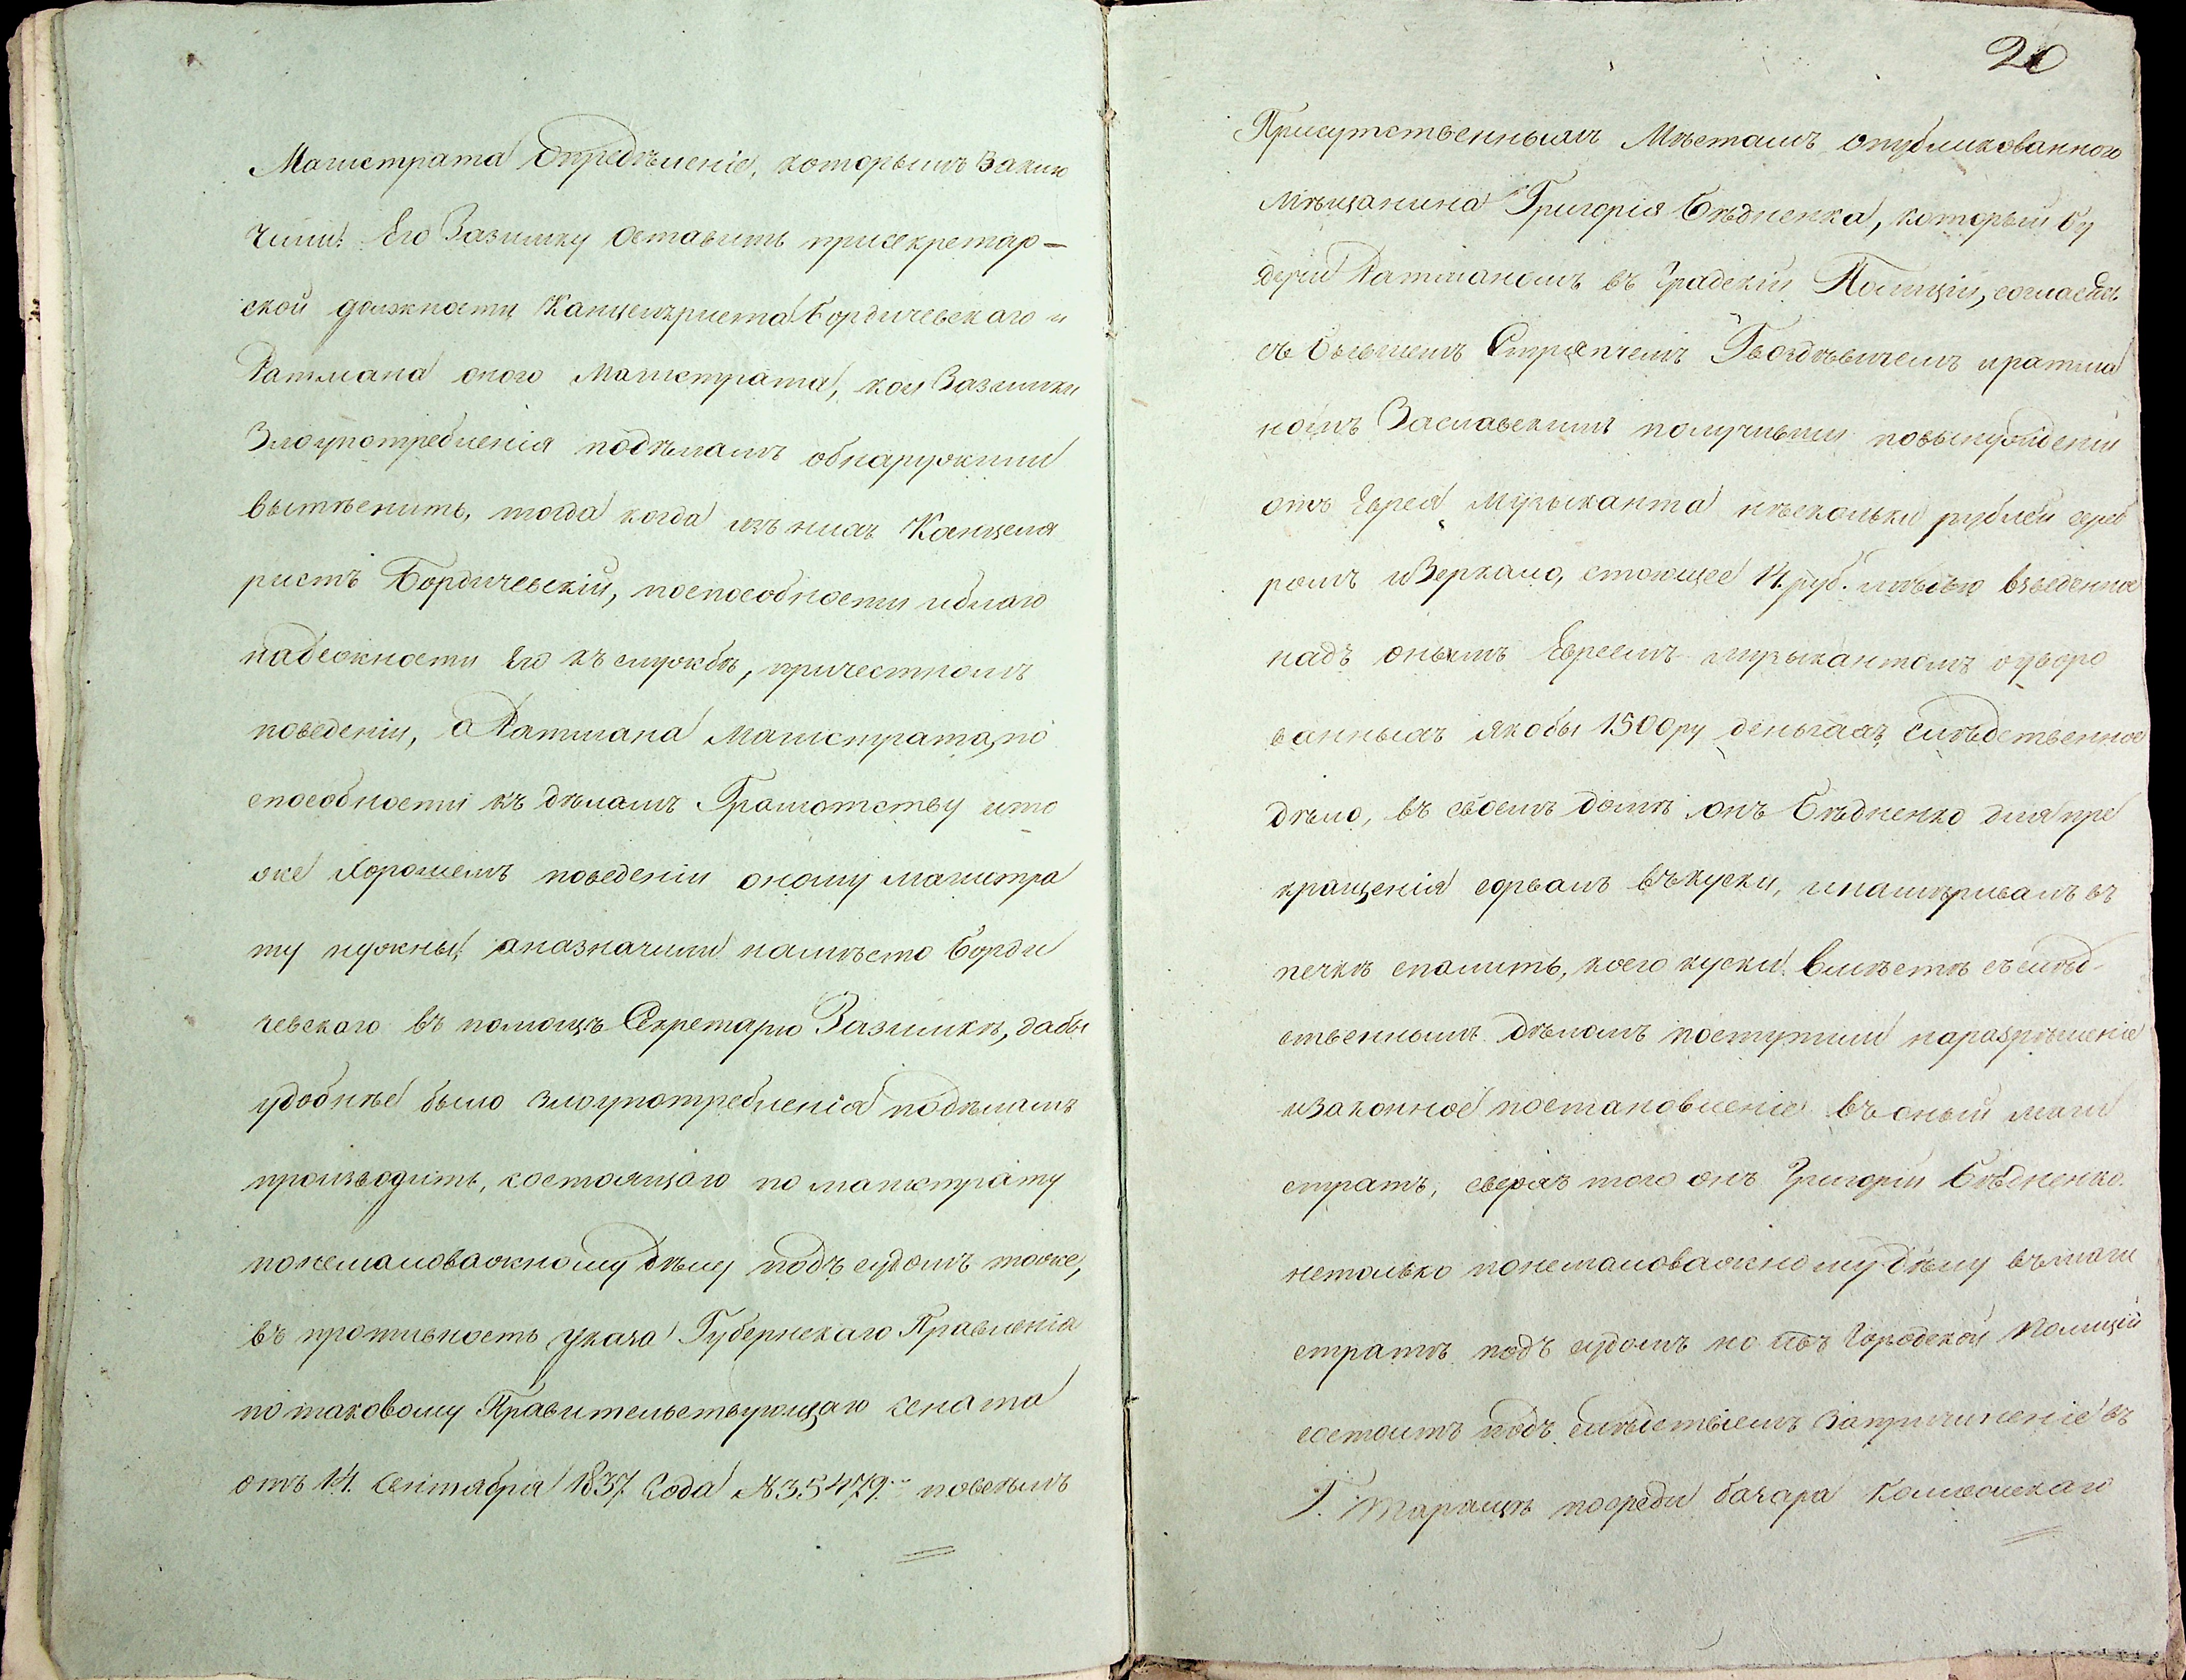 Магистрата Опредѣленіе, которымъ Заклю
чили: Его Зазимку оставить присекретар-
ской должности Канцеляриста Бордичевскаго и
Ратмана оного Магистрата, кои Зазимки
Злоупотребленія подѣламъ обнаружили
вытѣснить, тогда когда изъ нихъ Канцеля
ристъ Бордичевскій, поспособности иблаго
надежности Его къ службѣ, причестномъ
поведеніи, а Ратмана Магистрата, по
способности къ дѣламъ Грамотству ито
же Хорошемъ поведеніи оному магистра
ту нужны; аназначили намѣсто Борди
чевскаго въ помощъ Секретарю Зазимкѣ, дабы
удобнѣе было злоупотребленія подѣламъ
производить, состоящаго по магистрату
понемаловажному дѣлу подъ судомъ тоже,
въ противность указа Губернскаго Правленія
по таковому Правительствующаго сената
отъ 14. Сентября 1837 Года №35479.. повсѣмъ
20
Присутственнымъ Мѣстамъ опубликованного
мѣщанина Григорія Бѣдненка, который бу
дучи Ратманомъ въ Градскій Полиціи, согласясь
съ бывшемъ Стряпчемъ Гвоздѣвичемъ иратма
номъ Заславскимъ получивши повынужденіи
отъ Еврея Музыканта нѣсколько рублей сереб
ромъ иЗеркало, стоющее руб. взведенное
надъ онымъ Евреемъ музыкантомъ оуворо
ванныхъ якобы 1500ру деньгахъ, слѣдственное
дѣло, въ своемъ домѣ онъ Бѣдненко для пре
кращенія сорвалъ въкуски, инамѣривалъ въ
печкѣ спалить, коего куски вмѣстѣ съслѣд-
ственнымъ дѣломъ поступили наразрѣшеніе
изаконное постановленіе въ оный маги
стратъ, сверхъ того онъ Григорій Бѣдненко
нетолько понемаловажному дѣлу въмаги
стратѣ подъ судомъ но Городской Полиціи
состоитъ подъ слѣдствіемъ Запричиненіе въ
Г. Таращѣ посреди базара